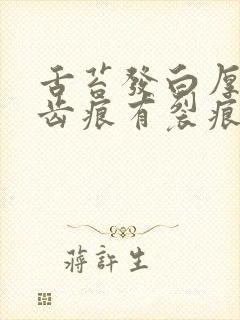 舌苔發白厚
齒痕有裂痕
蔣許生